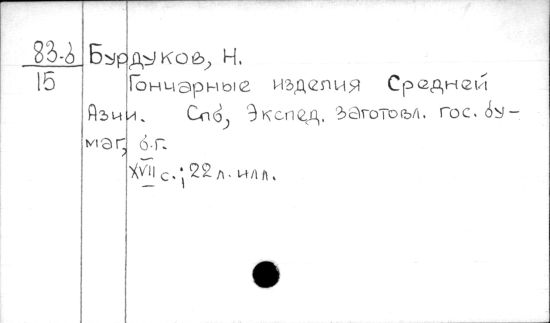 83-б Бурдуков, Н.
15 Гончарные изделия Средней
Азии. Спб, Экспед. заготовл. гос. бу-
маг, б.г.
XVII с.; 22 л. илл.